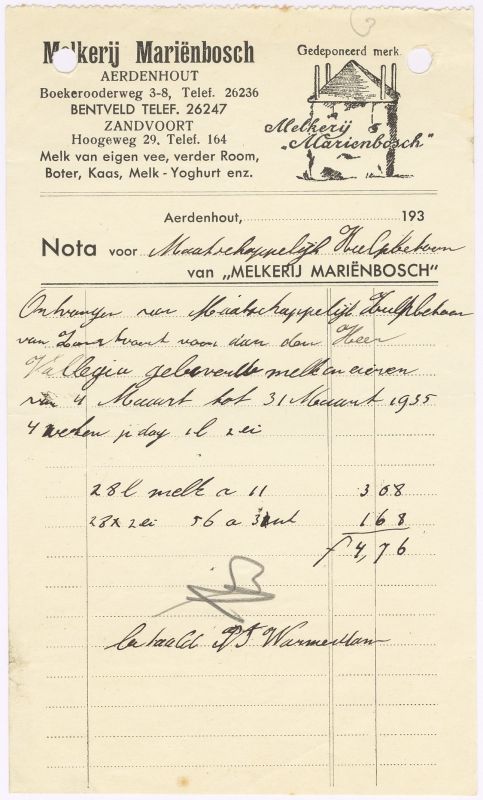 Melkerij Mariënbosch
AERDENHOUT
Boekerooderweg 3-8, Telef. 26236
BENTVELD TELEF. 26247
ZANDVOORT
Hoogeweg 29, Telef. 164
Melk van eigen vee, verder Room,
Boter, Kaas, Melk - Yoghurt enz.
Gedeponeerd merk.
Melkerij
„Mariënbosch"
Aerdenhout, 193
Nota voor Maatschappelijk Hulpbetoon
van „MELKERIJ MARIËNBOSCH"
Ontvangen van Maatschappelijk Hulpbetoon
van Zandvoort voor dan den Heer
geleverde melk en eieren
van 4 Maart tot 31 Maart 1935
4 weken p dag 1 l 2 ei
28 l melk a 11 3 08
28 x 2 ei 56 a 3 1 68
f 4,76
betaald